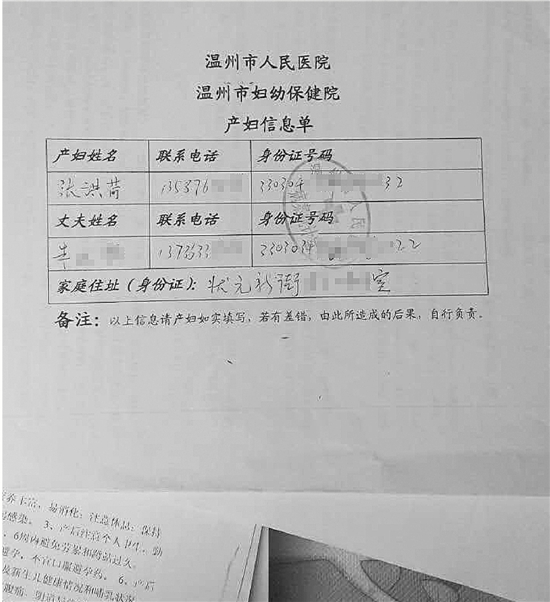 温州市人民医院
温州市妇幼保健院
产妇信息单
产妇姓名 联系电话 身份证号码
张洪苗 135876 330304 32
丈夫姓名 联系电话 身份证号码
137353 330304 22
家庭住址（身份证）：状元新街 室
备注：以上信息请产妇如实填写，若有差错，由此所造成的后果，自行负责。
养丰富，易消化；注意休息；保持
感染。 3、产后注意个人卫生，勤
6周内避免劳累和蹲站过久。
避孕，不宜口服避孕药。 6、产后
及新生儿健康情况和哺乳状况